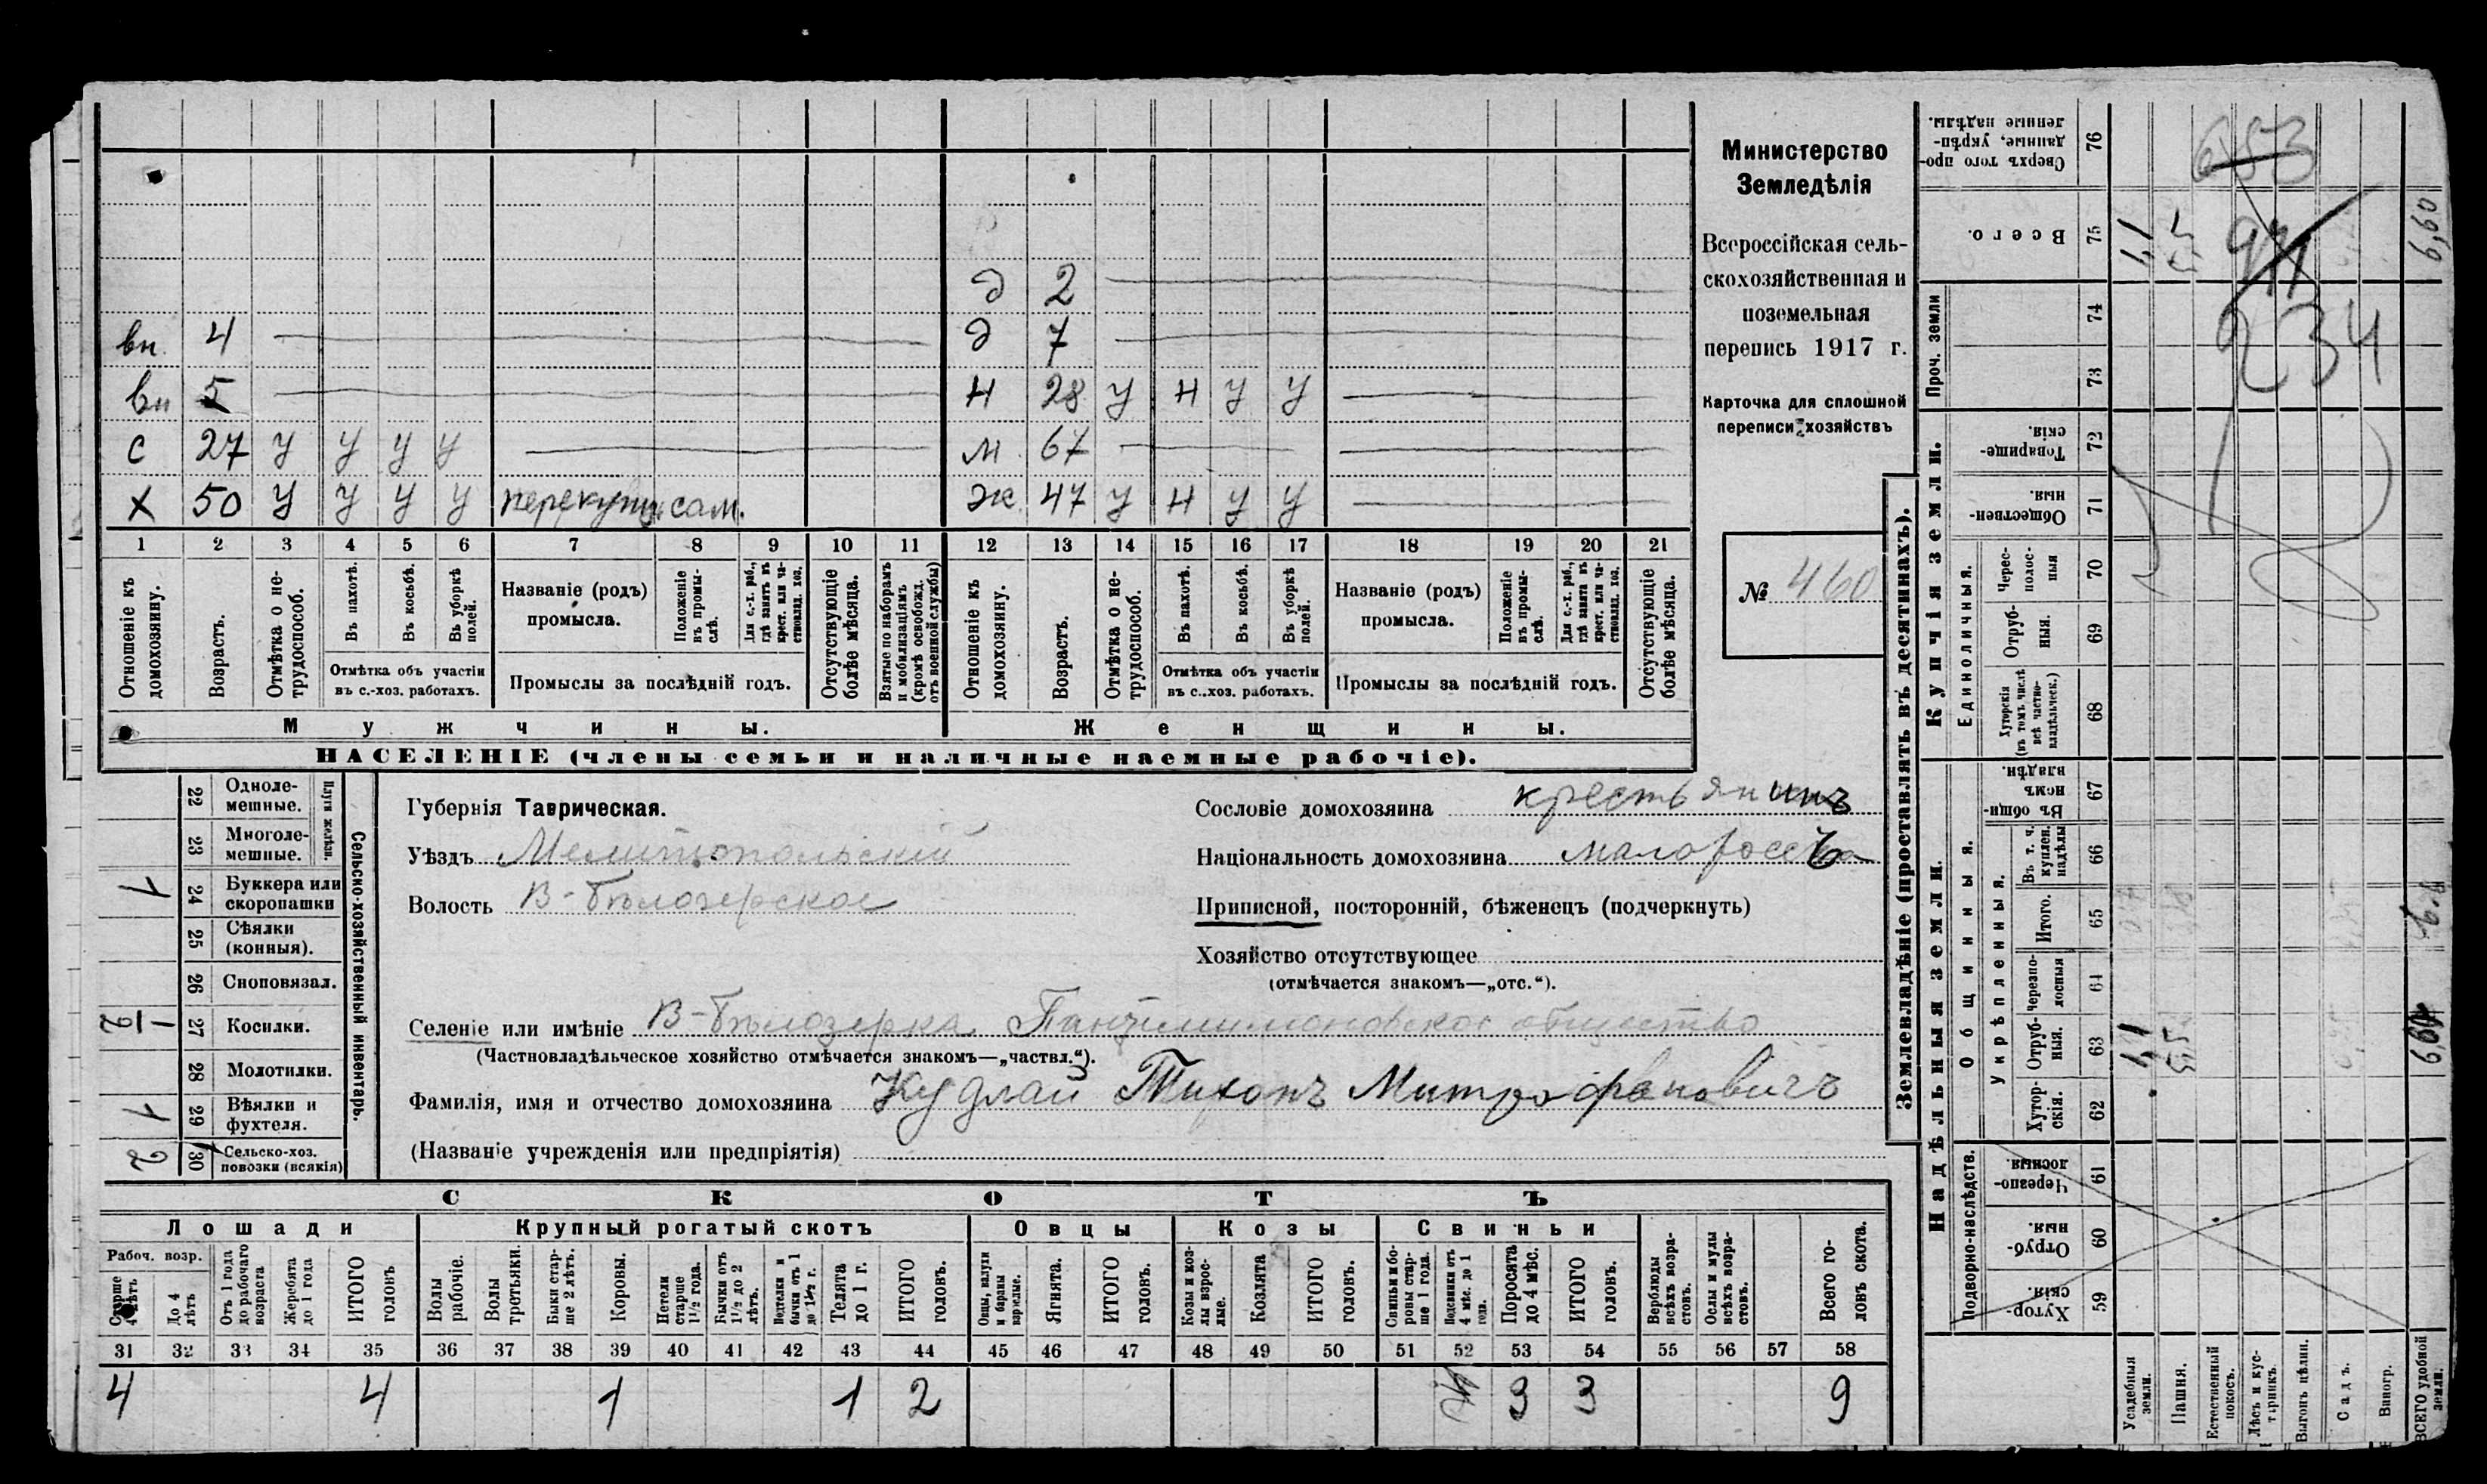 д 2
вн. 4 д 7
вн 5 Н 28 У Н У У
С 27 У У У У м 67
Х 50 У У У У сам. Ж 47 У Н У У
1 2 3 4 5 6 7 8 9 10 11 12 13 14 15 16 17 18 19 20 21
Отношеніе къ домохозяину.
Возрастъ.
Отмѣтка о нетрудоспособ.
Въ пахотѣ.
Въ косьбѣ.
Въ уборкѣ полей.
Отмѣтка объ участіи въ с.-хоз. работахъ.
Названіе (родъ) промысла.
Положеніе въ промыслѣ.
Для с.-х. раб., гдѣ занятъ въ крест. или частновлад. хоз.
Промыслы за послѣдній годъ.
Отсутствующіе болѣе мѣсяца.
Взятые по наборамъ и мобилизаціямъ (кромѣ освобожд. отъ военной службы)
Отношеніе къ домохозяину.
Возрастъ.
Отмѣтка о нетрудоспособ.
Въ пахотѣ.
Въ косьбѣ.
Въ уборкѣ полей.
Отмѣтка объ участіи въ с..хоз. работахъ.
Названіе (родъ) промысла.
Положеніе въ промыслѣ.
Для с.-х. раб., гдѣ занята въ крест. или частновлад. хоз.
Промыслы за послѣдній годъ.
Отсутствующіе болѣе мѣсяца.
Мужчины. Женщины.
НАСЕЛЕНІЕ (члены семьи и наличные наемные рабочіе).
Министерство
Земледѣлія
Всероссійская сель-
скохозяйственная и
поземельная
перепись 1917 г.
Карточка для сплошной
переписи хозяйствъ
№ 460
22 Однолемешные.
23 Многолемешные.
Плуги желѣзн.
24 Буккера или скоропашки 1
25 Сѣялки (конныя).
26 Сноповязал.
27 Косилки. 1/2
28 Молотилки.
29 Вѣялки и фухтеля. 1
30 Сельско-хоз. повозки (всякія) 2
Сельско-хозяйственный инвентарь.
Губернія Таврическая.
Уѣздъ Мелитопольскій
Волость В-Бѣлозерское
Сословіе домохозяина крестьянинъ
Національность домохозяина
Приписной, посторонній, бѣженецъ (подчеркнуть)
Хозяйство отсутствующее
(отмѣчается знакомъ—„отс.“).
Селеніе или имѣніе В-Бѣлозерка общество
(Частновладѣльческое хозяйство отмѣчается знакомъ—„частвл.“).
Фамилія, имя и отчество домохозяина Кудлай Тихонъ Митрофановичъ
(Названіе учрежденія или предпріятія)
СКОТЪ
Лошади Крупный рогатый скотъ Овцы Козы Свиньи
Рабоч. возр.
Старше 4 лѣтъ
До 4 лѣтъ
Отъ 1 года до рабочаго возраста
Жеребята до 1 года
ИТОГО головъ
Волы рабочіе.
Волы третьяки.
Быки старше 2 лѣтъ.
Коровы.
Нетели старше 1½ года.
Бычки отъ 1½ до 2 лѣтъ.
Подтелки и бычки отъ 1 до 1½ г.
Телята до 1 г.
ИТОГО головъ.
Овцы, валухи и бараны взрослые.
Ягнята.
ИТОГО головъ.
Козы и козлы взрослые.
Козлята
ИТОГО головъ.
Свиньи и боровы старше 1 года.
Подсвинки отъ 4 мѣс. до 1 года.
Поросята до 4 мѣс.
ИТОГО головъ.
Верблюды всѣхъ возрастовъ.
Ослы и мулы всѣхъ возрастовъ.
Всего головъ скота.
31 32 33 34 35 36 37 38 39 40 41 42 43 44 45 46 47 48 49 50 51 52 53 54 55 56 57 58
4 4 1 1 2 3 3 9
Землевладѣніе (проставлять въ десятинахъ).
Сверхъ того проданные, укрѣпленные надѣлы. 76
Всего. 75
Проч. земли 74 73
Купчія земли.
Товарищескія. 72
Общественныя. 71
Единоличныя.
Чересполосныя 70
Отрубныя. 69
Хуторскія (въ томъ числѣ всѣ частновладѣльческ.) 68
Надѣльныя земли.
Общинныя.
Въ общинномъ владѣн. 67
Укрѣпленныя.
Въ т. ч. куплен. надѣлы 66
Итого. 65
Черезполосныя 64
Отрубныя. 63
Хуторскія. 62
Подворно-наслѣдств.
Черезполосныя. 61
Отрубныя. 60
Хуторскія. 59
Усадебныя земли.
Пашня.
Естественный покосъ.
Лѣсъ и кустарникъ.
Выгонъ цѣлин.
Садъ.
Виногр.
ВСЕГО удобной земли.
1,1 5,5 6,60
1,1 5,5 6,60
653
234